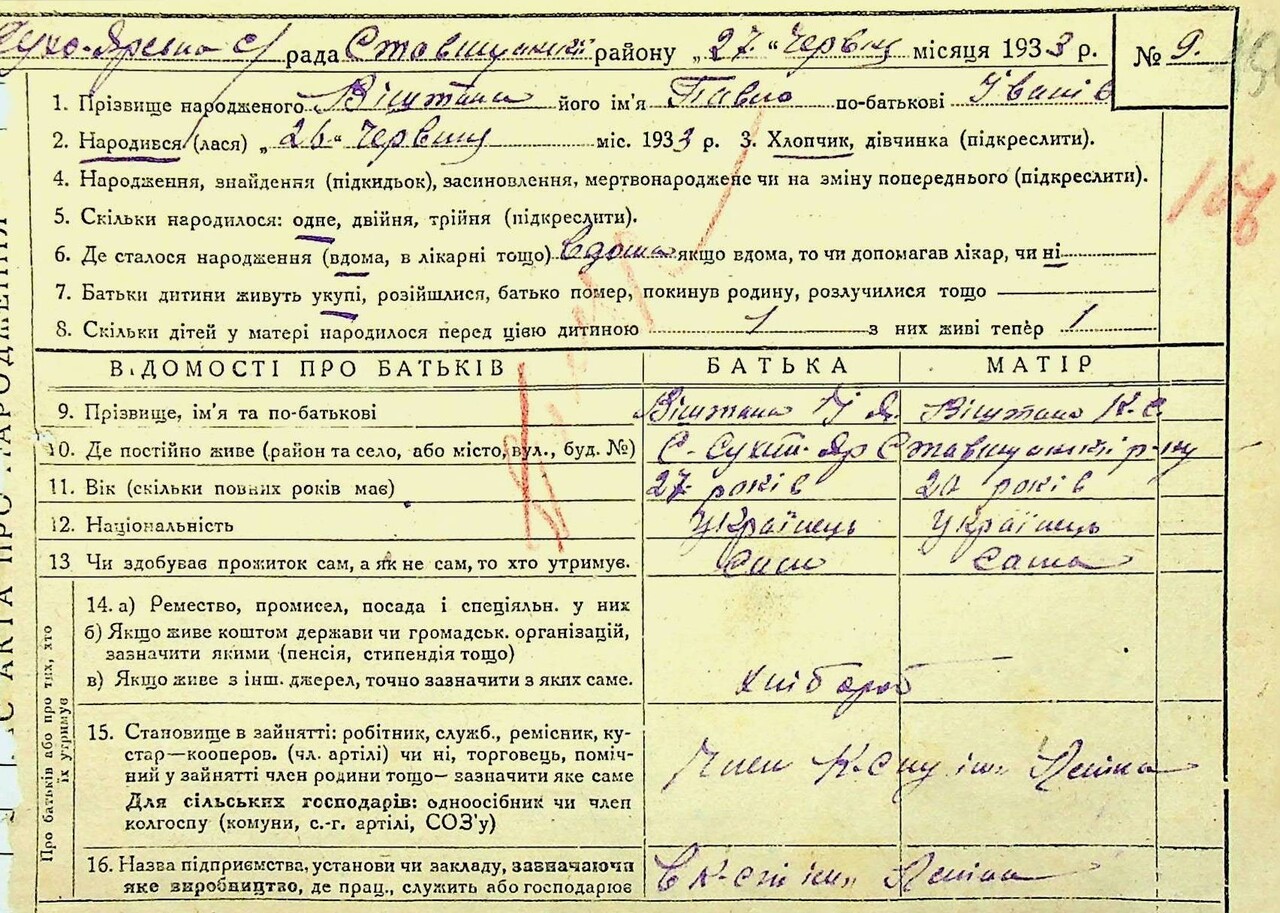 Сухо-Ярська с/ рада Ставищанськ району „27“ Червня місяця 1933 р. № 9.
1. Прізвище народженого Віштапа його ім'я Павло по-батькові Іванів
2. Народився (лася) „26“ Червня міс. 1933 р. 3. Хлопчик, дівчинка (підкреслити).
4. Народження, знайдення (підкидьок), засиновлення, мертвонароджене чи на зміну попереднього (підкреслити).
5. Скільки народилося: одне, двійня, трійня (підкреслити).
6. Де сталося народження (вдома, в лікарні тощо) вдома якщо вдома, то чи допомагав лікар, чи ні
7. Батьки дитини живуть укупі, розійшлися, батько помер, покинув родину, розлучилися тощо
8. Скільки дітей у матері народилося перед цією дитиною 1 з них живі тепер 1
ВІДОМОСТІ ПРО БАТЬКІВ БАТЬКА МАТІР
9. Прізвище, ім'я та по-батькові Віштапа І Я. Віштапа К. С.
10. Де постійно живе (район та село, або місто, вул., буд. №) С. Сухий-Яр Ставищанський р-ну
11. Вік (скільки повних років має) 27 років 20 років
12. Національність Українець Українець
13 Чи здобуває прожиток сам, а як не сам, то хто утримує. Сам Сама
Про батьків або про тих, хто їх утримує
14. а) Ремество, промисел, посада і спеціяльн. у них
б) Якщо живе коштом держави чи громадськ. організацій,
зазначити якими (пенсія, стипендія тощо)
в) Якщо живе з інш. джерел, точно зазначити з яких саме. хлібороб
15. Становище в зайнятті: робітник, служб., ремісник, ку-
стар—кооперов. (чл. артілі) чи ні, торговець, поміч-
ний у зайнятті член родини тощо— зазначити яке саме Член К-спу ім. Леніна
Для сільських господарів: одноосібник чи член
колгоспу (комуни, с.-г. артілі, СОЗ'у)
16. Назва підприємства, установи чи закладу, зазначаючи
яке виробництво, де прац., служить або господарює в К-спі ім. Леніна